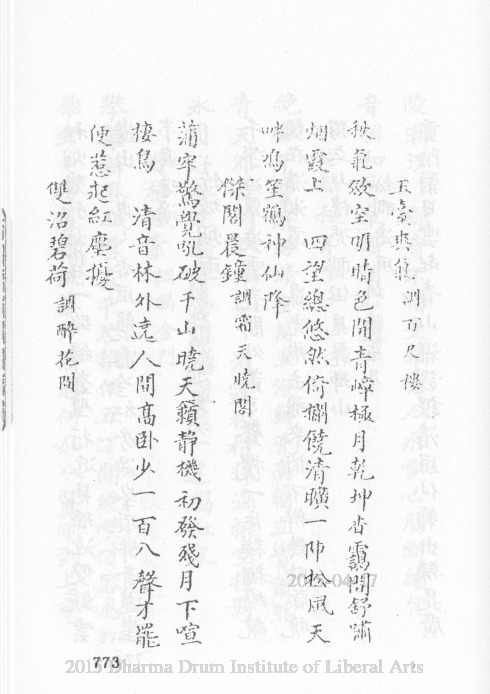 玉臺爽氣 調百尺樓
秋氣斂空明晴色開青嶂極月乾坤杳靄間舒嘯
烟霞上　四望總悠然倚擱饒清曠一陣松風天
畔鳴笙鶴神仙降
傑閣晨鐘 調霜天曉閣
蒲牢驚覺吼破千山曉天籟靜機初發殘月下喧
棲鳥　清音林外遶人間高卧少一百八聲才罷
便惹起紅塵擾
雙沼碧荷 調醉花間
773
2015 Dharma Drum Institute of Liberal Arts